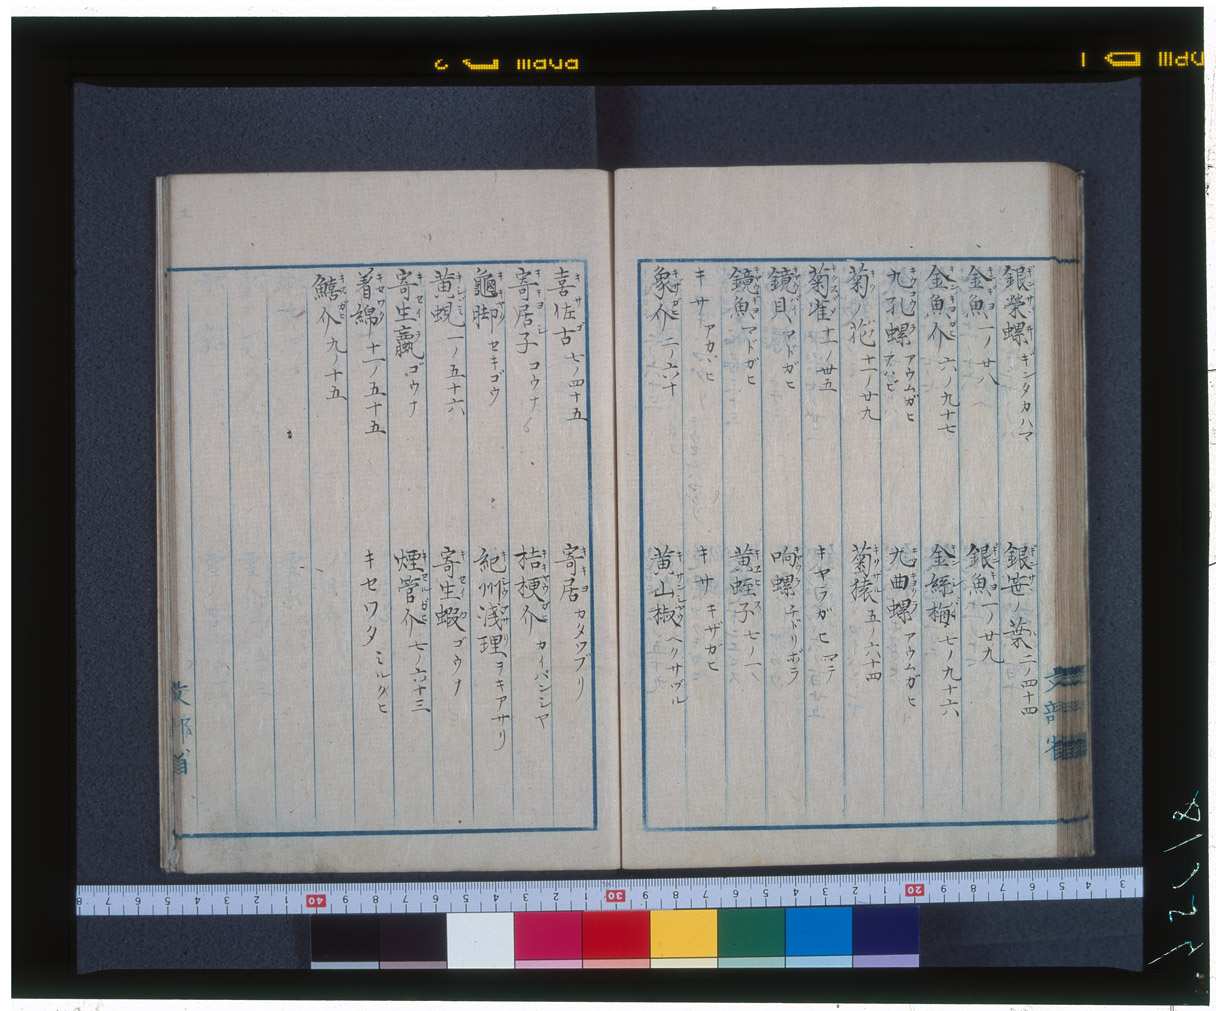 銀榮螺 ギンタカハマ
銀笹ノ葉 二ノ四十四
金魚 一ノ廿八
銀魚 一ノ廿九
金魚介 六ノ九十七
金絲梅 七ノ九十六
九孔螺 アウムガヒ アハビ
九曲螺 アウムガヒ
菊ノ花 十一ノ廿九
菊猿 五ノ六十四
菊雀 十一ノ廿五
キヤラガヒ マテ
鏡貝 マドガヒ
响螺 チドリボラ
鏡魚 マドガヒ
黄蛭子 七ノ一
キサ アカヾヒ
キサ キザガヒ
象介 二ノ六十
黄山椒 ヘリサヅル
文部省
喜佐古 七ノ四十五
寄居 カタツブリ
寄居子 コウナ
桔梗介 カイバンシヤ
龜脚 セキゴウ
紀州淺理 ヲキアサリ
黄蜆 一ノ五十六
寄生蝦 ゴウナ
寄生蠃 ゴウナ
煙管介 七ノ六十三
着綿 十一ノ五十五
キセワタ ミルクヒ
鱚介 九ノ十五
文部省